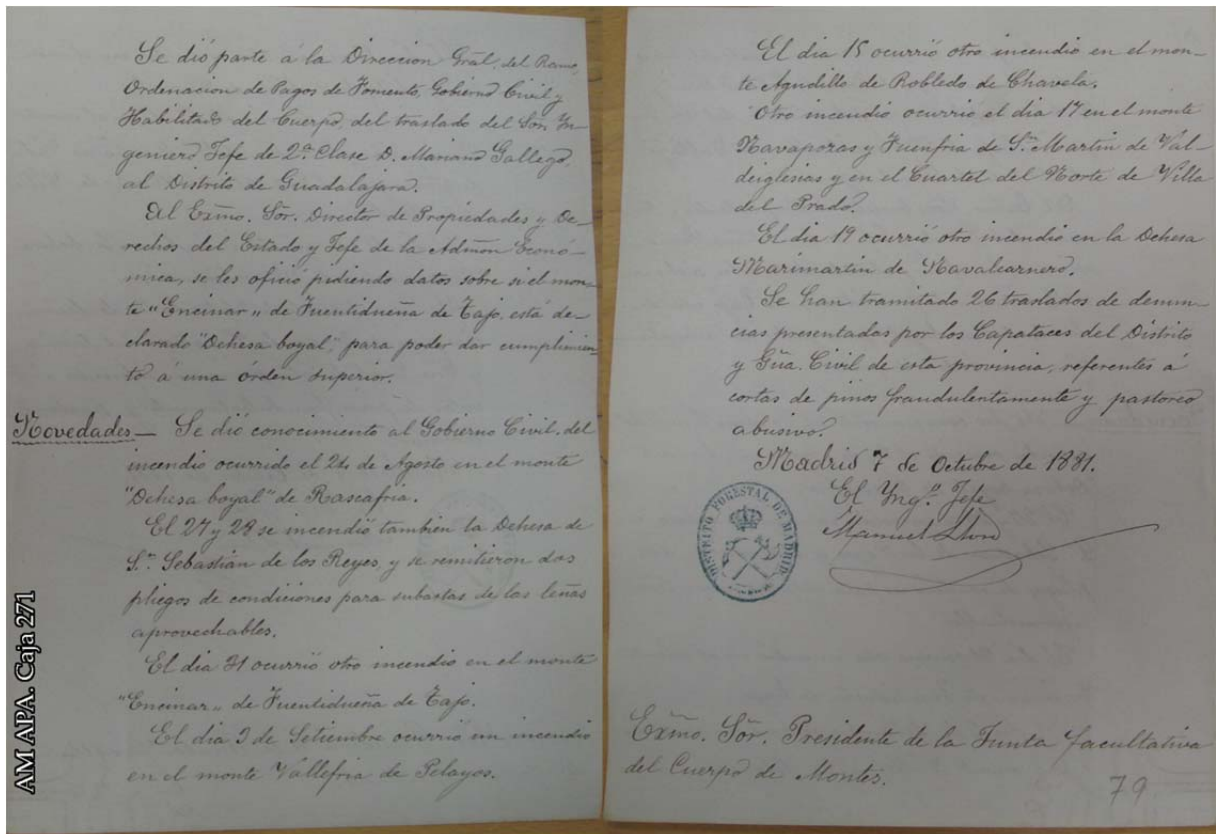 Se dió parte á la Direccion Gral. del Ramo,
Ordenacion de Pagos de Fomento, Gobierno Civil y
Habilitado del Cuerpo, del traslado del Sor. In-
geniero Jefe de 2ª Clase D. Mariano Gallego,
al Distrito de Guadalajara.
Al Exmo. Sór. Director de Propiedades y De-
rechos del Estado y Jefe de la Admon Econó-
mica, se les ofició pidiendo datos sobre si el mon-
te "Encinar" de Fuentidueña de Tajo, está de-
clarado "Dehesa boyal", para poder dar cumplimien-
to á una órden superior.
Novedades — Se dió conocimiento al Gobierno Civil, del
incendio ocurrido el 24 de Agosto en el monte
"Dehesa boyal" de Rascafria.
El 27 y 28 se incendió tambien la Dehesa de
Sn. Sebastian de los Reyes, y se remitieron dos
pliegos de condiciones para subastas de las leñas
aprovechables.
El dia 31 ocurrió otro incendio en el monte
"Encinar" de Fuentidueña de Tajo.
El dia 3 de Setiembre ocurrió un incendio
en el monte Vallefria de Pelayos.
AM APA. Caja 271
El dia 15 ocurrió otro incendio en el mon-
te Agudillo de Robledo de Chavela.
Otro incendio ocurrió el dia 17 en el monte
Navapozas y Fuenfria de Sn. Martin de Val-
deiglesias y en el Cuartel del Norte de Villa
del Prado.
El dia 19 ocurrió otro incendio en la Dehesa
Marimartin de Navalcarnero.
Se han tramitado 26 traslados de denun-
cias presentadas por los Capataces del Distrito
y Gúa. Civil de esta provincia, referentes á
cortas de pinos fraudulentamente y pastoreo
abusivo.
Madrid 7 de Octubre de 1881.
El Yngo. Jefe
Manuel
DISTRITO FORESTAL DE MADRID
Exmo. Sór. Presidente de la Junta facultativa
del Cuerpo de Montes.
79